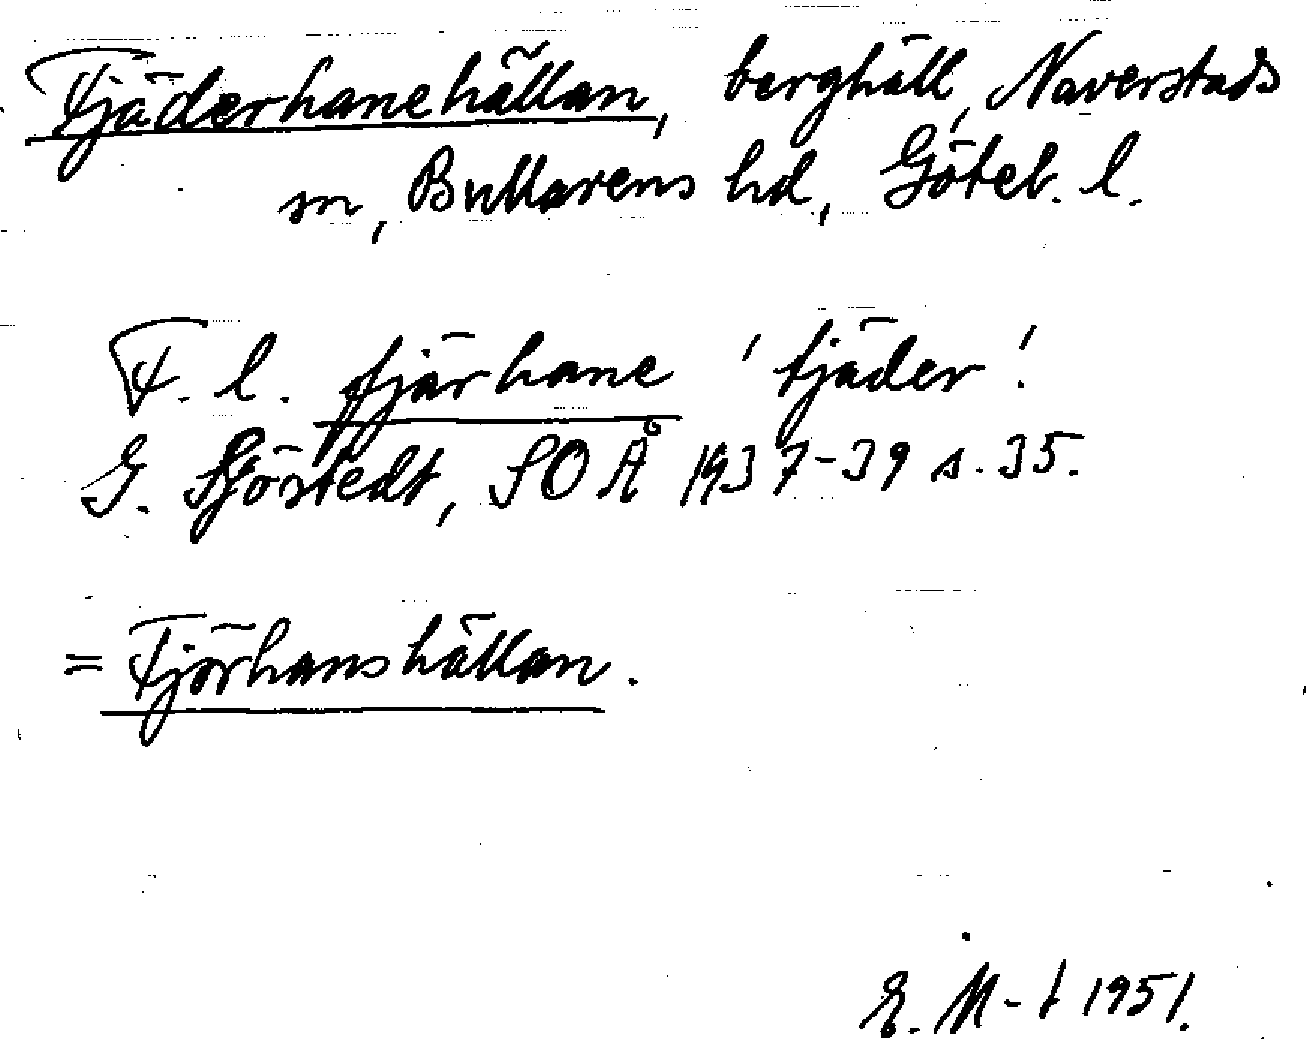 Fjäderhanehällan, berghäll, Naverstads
sn, Bullarens hd, Göteb. l.
F. l. fjärhane 'tjäder'.
G. Sjöstedt, SOÅ 1937-39 s. 35.
= Fjörhanshällan.
E. M-t 1951.